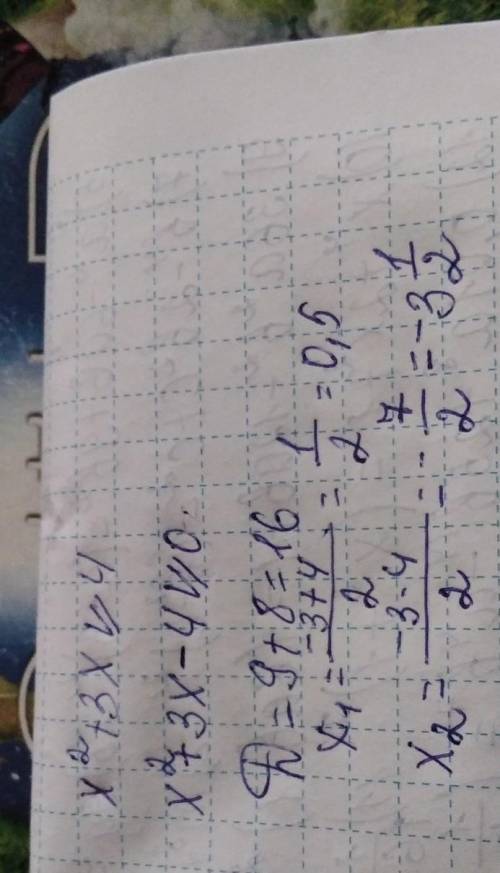 x²+3x ⩽ 4
x²+3x-4 ⩽ 0.
D = 9+8 = 16
x₁ = \frac{-3+4}{2} = \frac{1}{2} = 0,5
x₂ = \frac{-3-4}{2} = -\frac{7}{2} = -3\frac{1}{2}